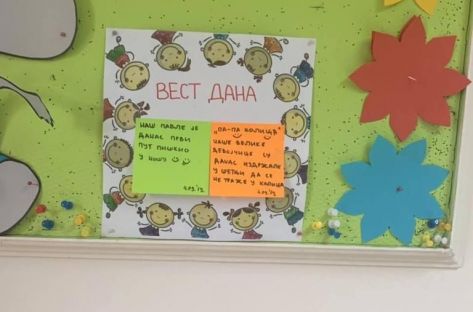 ВЕСТ ДАНА
НАШ ПАВЛЕ ЈЕ
ДАНАС ПРВИ
ПУТ ПИШКИО
У НОШУ
"ПА-ПА КОЛИЦА"
НАШЕ ВЕЛИКЕ
ДЕВОЈЧИЦЕ СУ
ДАНАС ИЗДРЖАЛЕ
У ШЕТЊИ ДА СЕ
НЕ ТРАЖЕ У КОЛИЦА